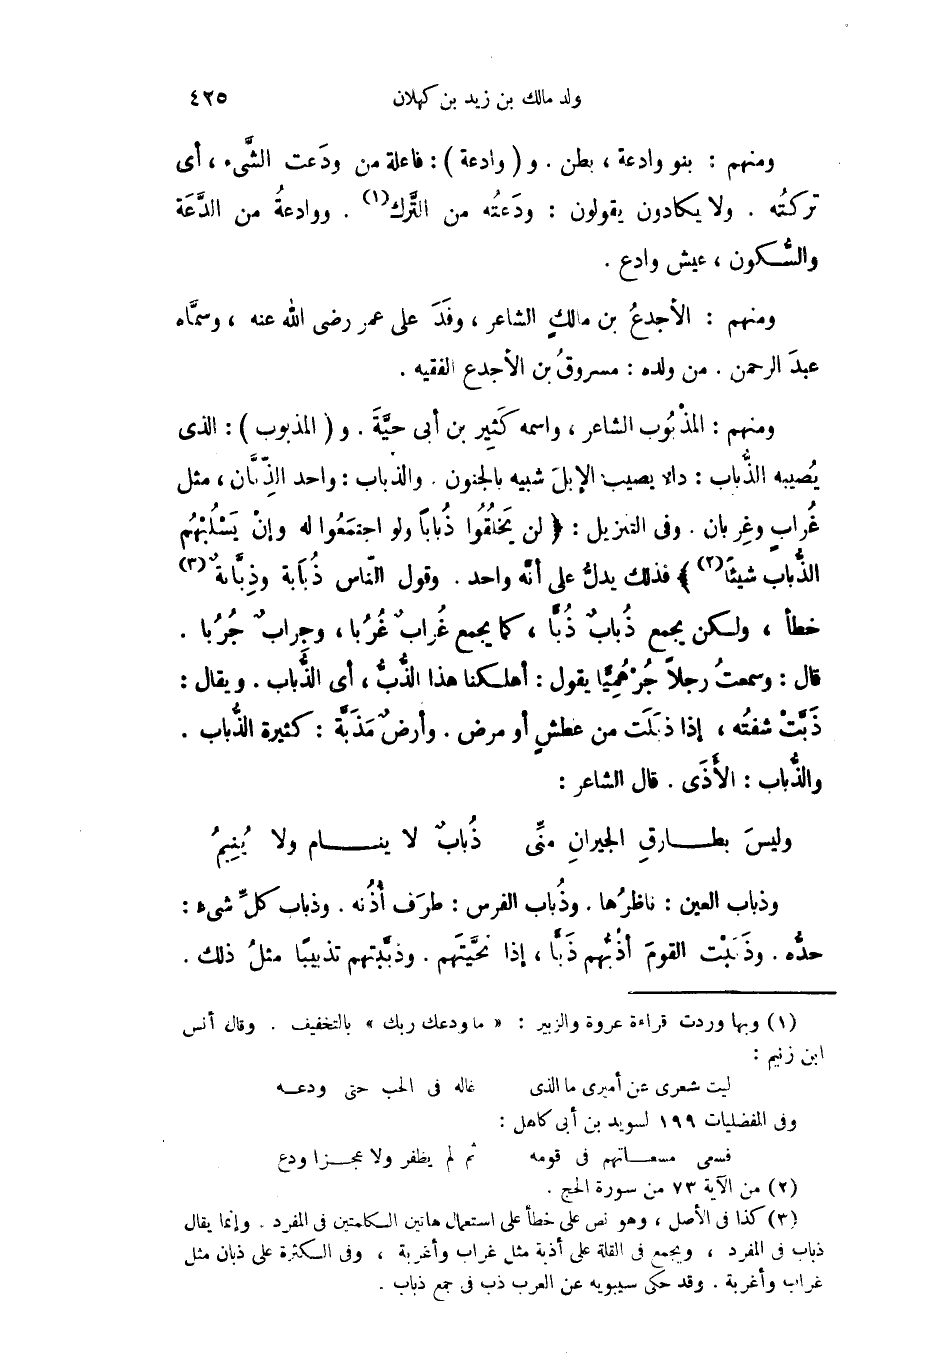 ولد مالك بن زيد بن كهلان ٤٢٥
ومنهم : بنو وادعة ، بطن . و ( وادعة ) : فاعلة من ودَعت الشَّىء ، أى
تركتُه . ولا يكادون يقولون : ودَعتُه من التَّرك(١) . ووادعةُ من الدَّعَة
والسُّكون ، عيش وادع .
ومنهم : الأجدعُ بن مالكٍ الشاعر ، وفَدَ على عمر رضى الله عنه ، وسمَّاه
عبدَ الرحمن . من ولده : مسروقُ بن الأجدع الفقيه .
ومنهم : المذْبُوب الشاعر ، واسمه كَثِير بن أبى حيَّةَ . و ( المذبوب ) : الذى
يُصيبه الذُّباب : داء يصيب الإبلَ شبيه بالجنون . والذباب : واحد الذِّبَّان ، مثل
غُرابٍ وغِربان . وفى التنزيل : ﴿ لن يَخلُقُوا ذُباباً ولو اجتمَعُوا له وإنْ يَسْلُبْهُم
الذُّبابُ شيئًا(٢) ﴾ فذلك يدلُّ على أنَّه واحد . وقول النّاس ذُبَابة وذِبَّانة(٣)
خطأ ، ولكن يجمع ذُبابٌ ذُبًّا ، كما يجمع غُرابٌ غُرُبا ، وجِرابٌ جُرُبا .
قال : وسمعتُ رجلاً جُرْهُمِيًّا يقول : أهلكنا هذا الذُّبُّ ، أى الذُّباب . ويقال :
ذَبَّتْ شفتُه ، إذا ذبَلَت من عطشٍ أو مرض . وأرضٌ مَذَبَّة : كثيرة الذُّباب .
والذُّباب : الأَذَى . قال الشاعر :
وليسَ بطارقِ الجيرانِ منِّى ذُبابٌ لا ينام ولا يُنِيمُ
وذباب العين : ناظرُها . وذُباب الفرس : طرَف أذُنه . وذباب كلِّ شىء :
حدُّه . وذَبَبْت القومَ أذُبُّهم ذَبًّا ، إذا نحَّيتَهم . وذبَّبتهم تذبيبًا مثلُ ذلك .
(١) وبها وردت قراءة عروة والزبير : « ما ودعك ربك » بالتخفيف . وقال أنس
ابن زنيم :
ليت شعرى عن أميرى ما الذى غاله فى الحب حتى ودعه
وفى المفضليات ١٩٩ لسويد بن أبى كاهل :
فسعى مسعاتهم فى قومه ثم لم يظفر ولا عجزا ودع
(٢) من الآية ٧٣ من سورة الحج .
(٣) كذا فى الأصل ، وهو نص على خطأ على استعمال هاتين الكلمتين فى المفرد . وإنما يقال
ذباب فى المفرد ، ويجمع فى القلة على أذبة مثل غراب وأغربة ، وفى الكثرة على ذبان مثل
غراب وأغربة . وقد حكى سيبويه عن العرب ذب فى جمع ذباب .